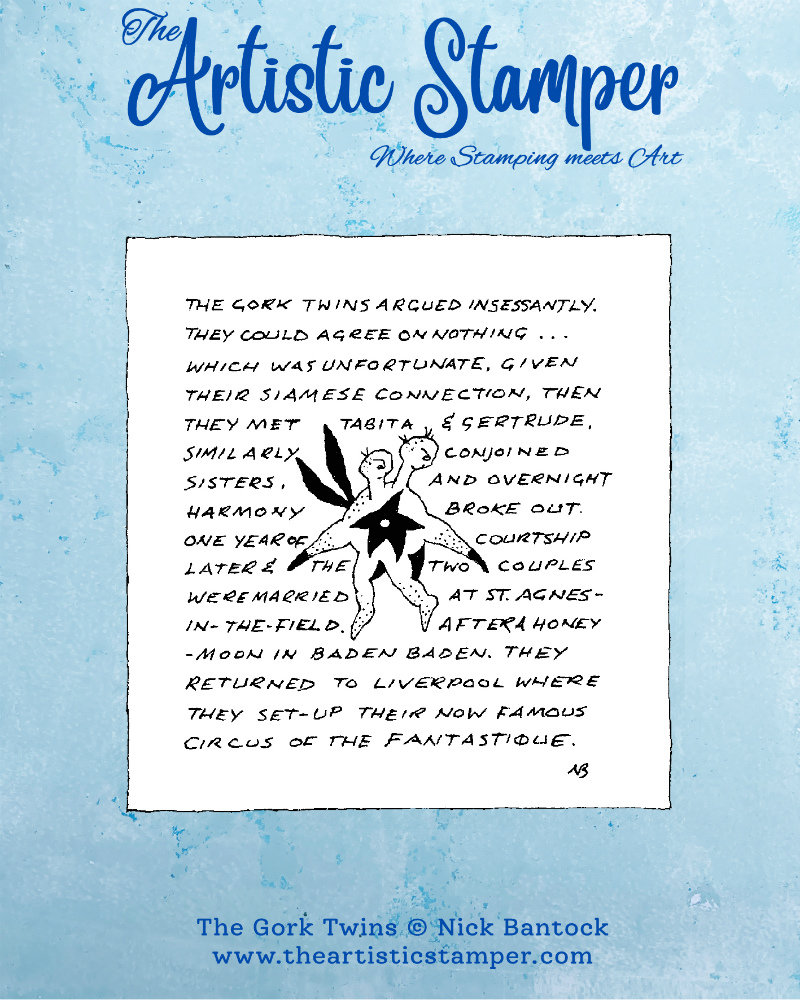 The
Artistic Stamper
Where Stamping meets Art
THE GORK TWINS ARGUED INSESSANTLY.
THEY COULD AGREE ON NOTHING ...
WHICH WAS UNFORTUNATE, GIVEN
THEIR SIAMESE CONNECTION, THEN
THEY MET TABITA & GERTRUDE,
SIMILARLY CONJOINED
SISTERS, AND OVERNIGHT
HARMONY BROKE OUT.
ONE YEAR OF COURTSHIP
LATER & THE TWO COUPLES
WERE MARRIED AT ST. AGNES-
IN-THE-FIELD. AFTER A HONEY
-MOON IN BADEN BADEN. THEY
RETURNED TO LIVERPOOL WHERE
THEY SET-UP THEIR NOW FAMOUS
CIRCUS OF THE FANTASTIQUE.
NB
The Gork Twins © Nick Bantock
www.theartisticstamper.com